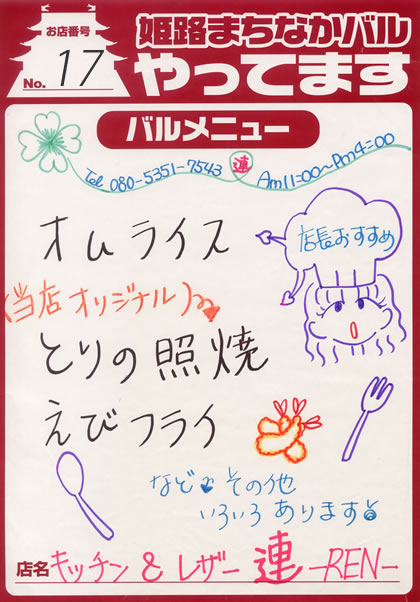 お店番号
No. 17
姫路まちなかバル
やってます
バルメニュー
Tel 080-5351-7543 連 Am11:00~Pm4:00
オムライス
店長おすすめ
(当店オリジナル)
とりの照焼
えびフライ
など その他
いろいろあります
店名 キッチン & レザー 連 -REN-